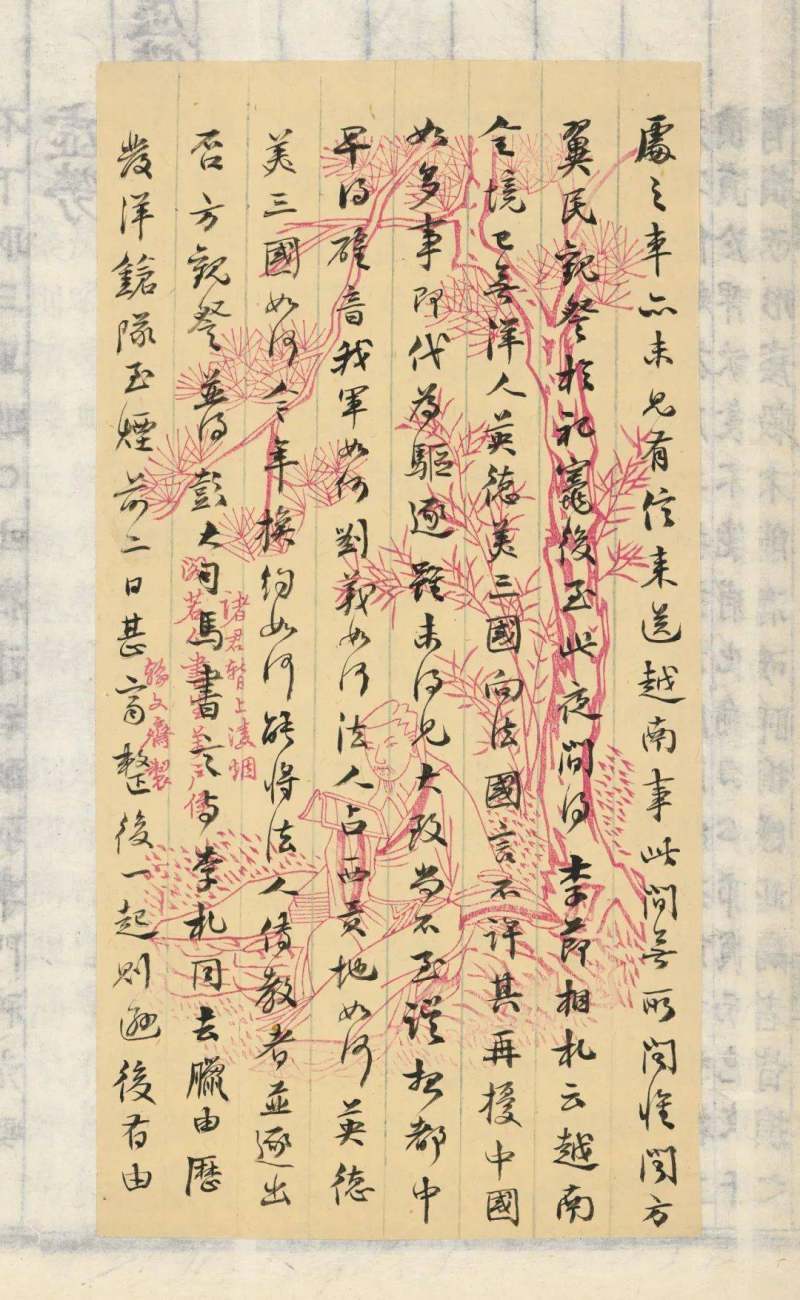 處之車亦未見有信來送越南事此間無所聞惟聞方
翼民觀詧於祀竈後至此夜間得李節相札云越南
全境已無洋人英德美三國向法國言不許其再擾中國
如多事即代為驅逐雖未得見大致當不至誤想都中
早得確音我軍如何劉義如何法人占西貢地如何英德
美三國如何今年換約如何能將法人傳教者並逐出
否方觀詧並得彭大司馬書言与李札同去臘由歷
發洋鎗隊至煙前二日甚齊整後一起則遜後有由
諸君暫上凌煙
翰文齋製